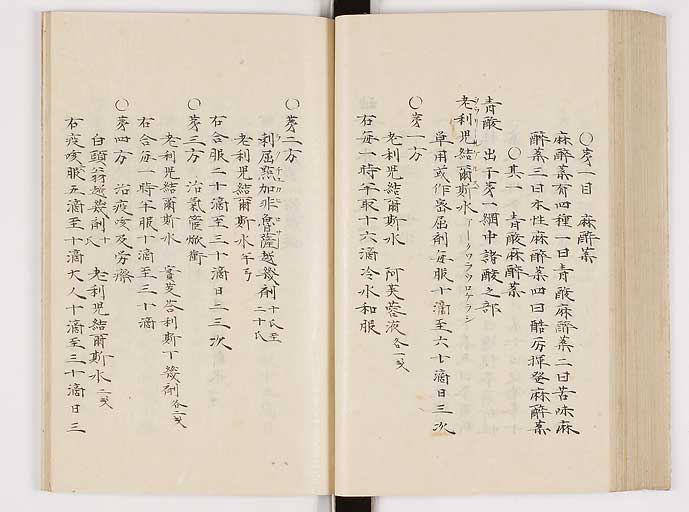 ○第一目 麻酔薬
麻酔薬有四種一曰青酸麻酔薬二曰苦味麻
酔薬三曰木性麻酔薬四曰酷厉揮發麻酔薬
○其一 青酸麻酔薬
青酸 出于第一綱中諸酸之部
老利児結爾斯水
単用或作舎利別剤毎服十滴至六七滴日三次
○第一方
老利児結爾斯水 阿芙蓉液各一戔
右毎一時半取十六滴冷水和服
○第二方
利屈爾加非魯薩越幾剤十氏至二十氏
老利児結爾斯水半弓
右合服二十滴至三十滴日二三次
○第三方 治氣管焮衝
老利児結爾斯水 實芰荅利斯丁幾剤各二戔
右合毎一時半服十滴至三十滴
○第四方 治痰咳及労療
白頭翁越幾剤十氏 老利児結爾斯水二戔
右痰咳服五滴至十滴大人十滴至三十滴日三